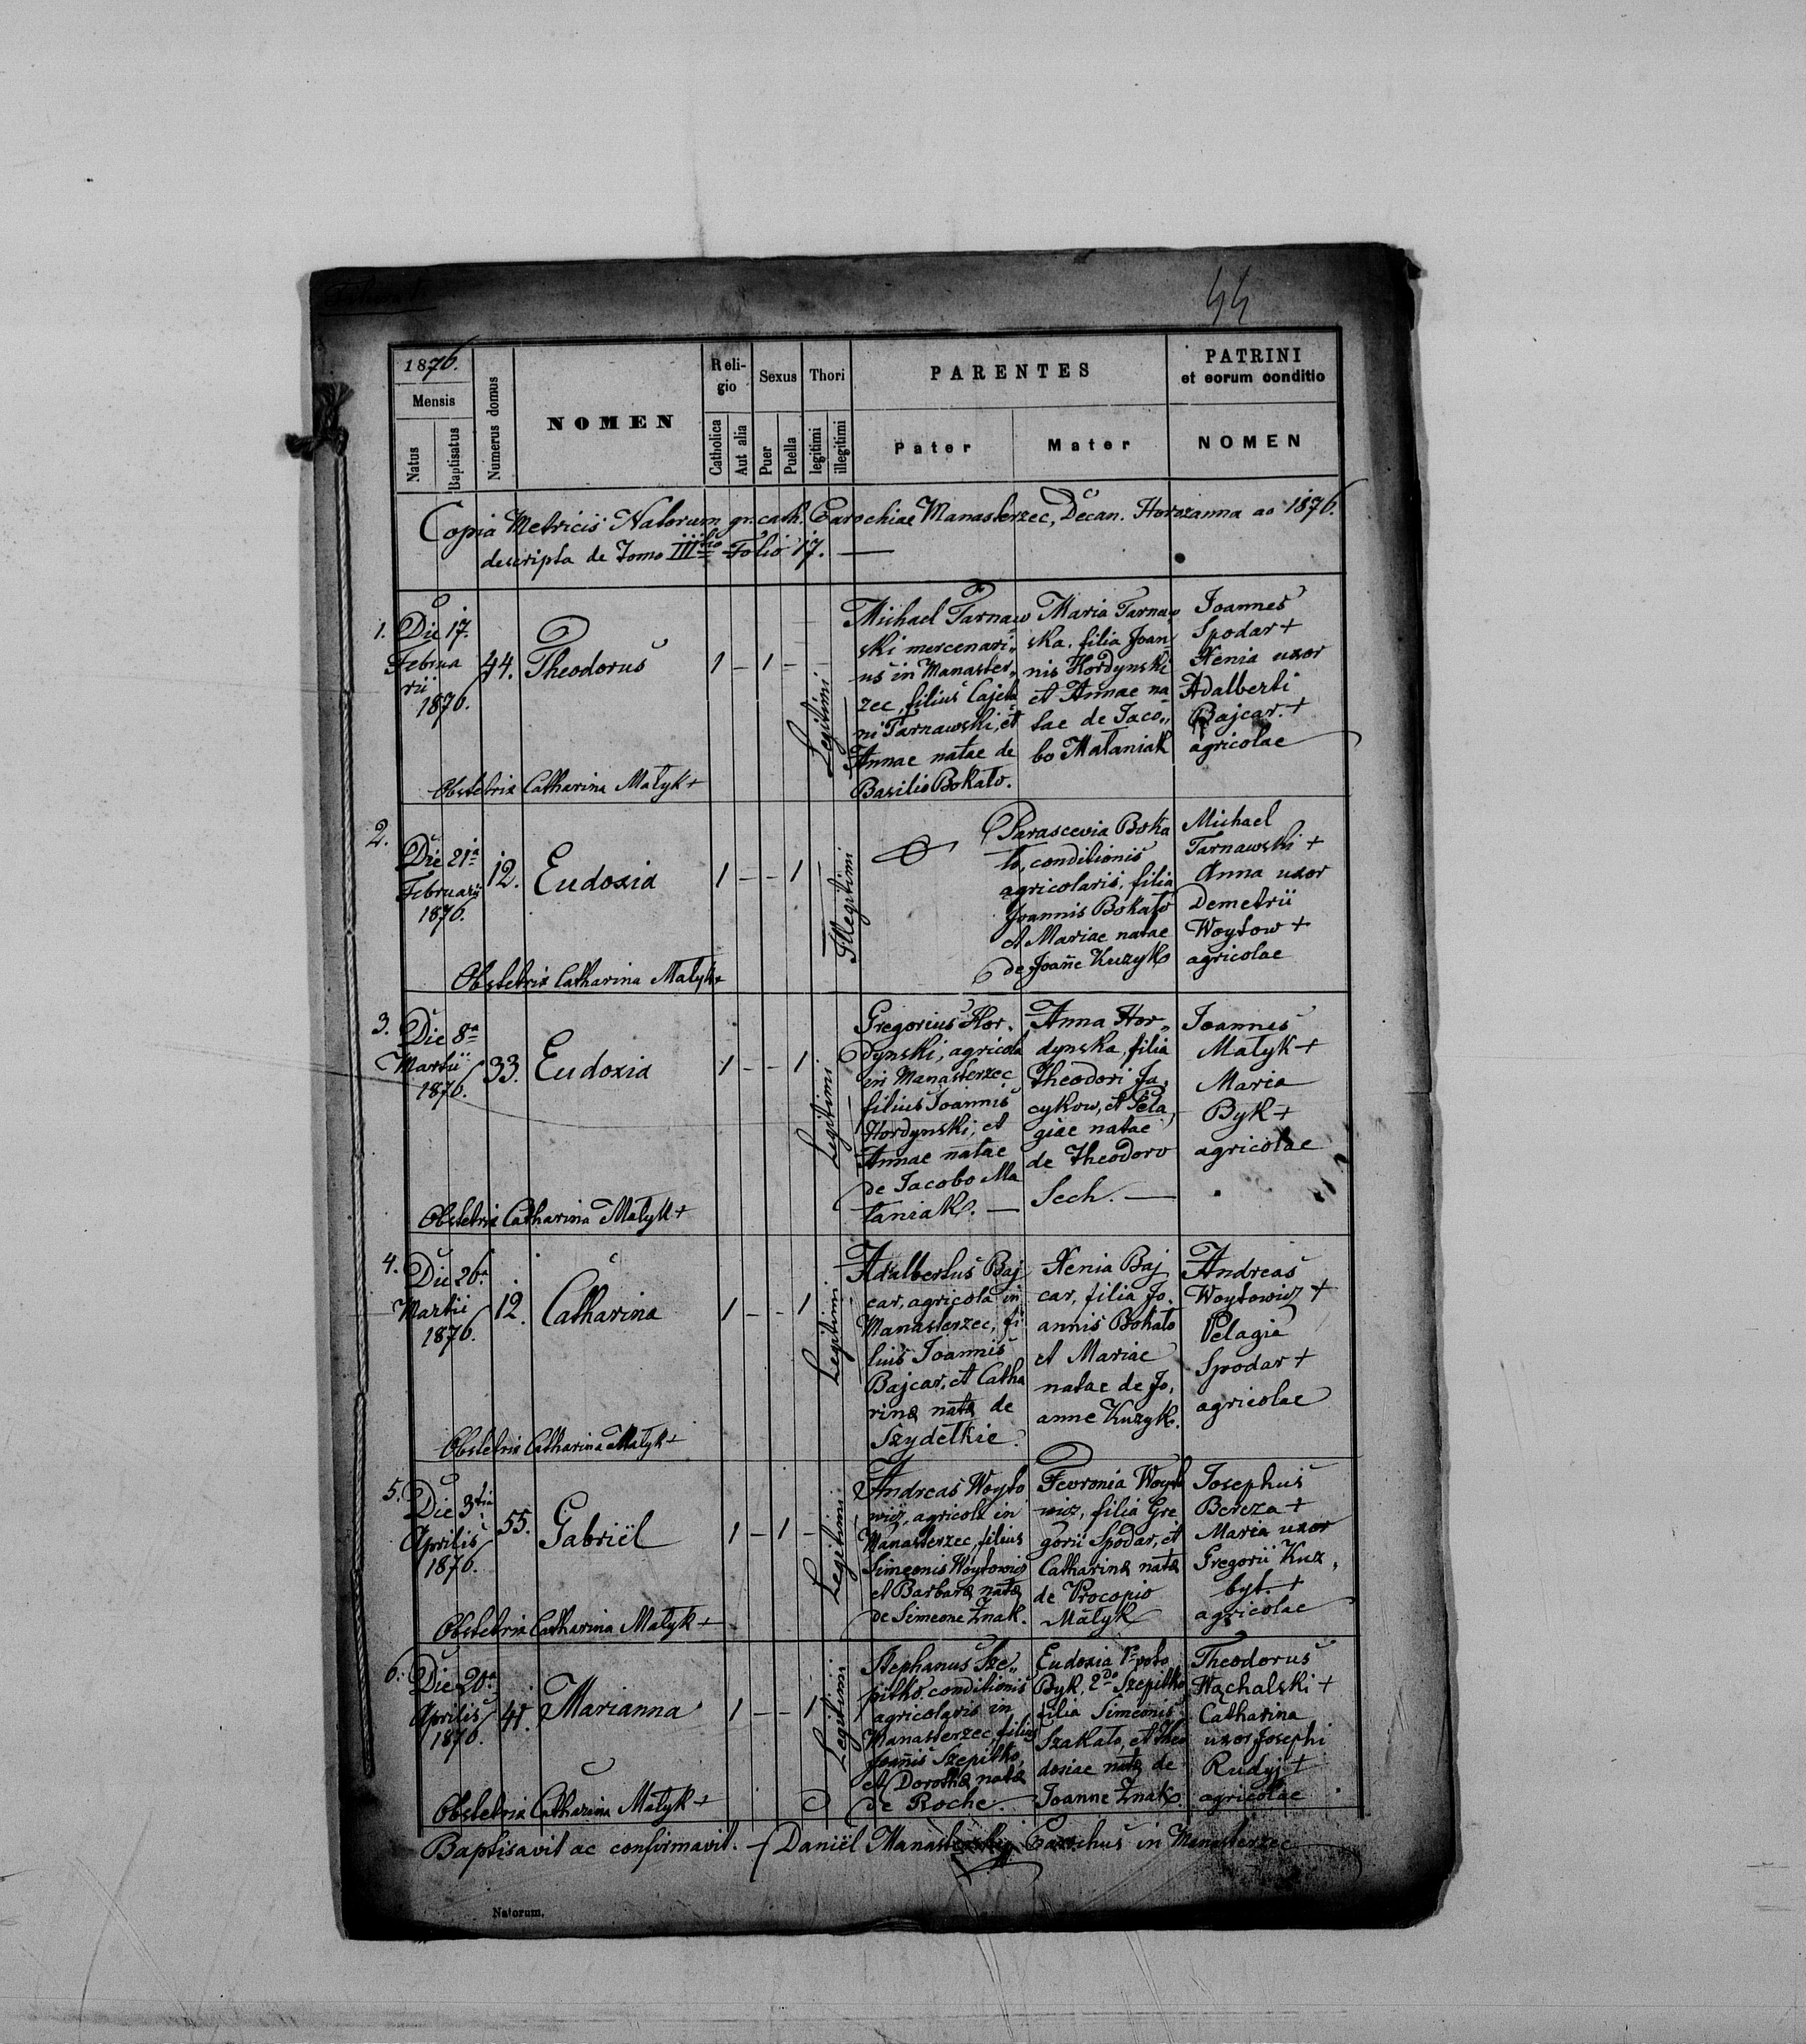 44
1876.
Mensis
Natus
Baptisatus
Numerus domus
NOMEN
Religio
Catholica
Aut alia
Sexus
Puer
Puella
Thori
legitimi
illegitimi
PARENTES
Pater
Mater
PATRINI
et eorum conditio
NOMEN
Copia Metricis Natorum gr. cath. Parochiae Manasterzec, Decan. Horozanna ao 1876.
descripta de Tomo III tio Folio 17. —
1. Die 17.
Februa
rii
1876.
44.
Theodorus
1 – 1 –
Legitimi
Michael Tarnaw
ski mercenari„
us in Manaster„
zec, filius Cajeta
ni Tarnawski, et
Annae natae de
Basilio Bokało.
Maria Tarnaw
ska, filia Joan
nis Hordynski
et Annae na
tae de Jaco„
bo Mataniak
Joannes
Spodar +
Xenia uxor
Adalberti
Bajcar. +
agricolae
Obstetrix Catharina Małyk +
2.
Die 21a
Februarii
1876.
12.
Eudoxia
1 – – 1
Illegitimi
Parascevia Boka
ło, conditionis
agricolaris, filia
Joannis Bokało
et Mariae natae
de Joañe Kuzyk
Michael
Tarnawski +
Anna uxor
Demetrii
Woytow +
agricolae
Obstetrix Catharina Małyk +
3.
Die 8a
Martii
1876.
33.
Eudoxia
1 – – 1
Legitimi
Gregorius Hor.
dynski, agricola
in Manasterzec
filius Joannis
Hordynski, et
Annae natae
de Jacobo Ma
taniak. —
Anna Hor„
dynska, filia
Theodori Ja„
cykow, et Pela„
giae natae
de Theodoro
Sech. —
Joannes
Małyk +
Maria
Byk +
agricolae
Obstetrix Catharina Małyk +
4.
Die 26a
Martii
1876.
12.
Catharina
1 – – 1
Legitimi
Adalbertus Baj
car, agricola in
Manasterzec, fi
lius Joannis
Bajcar, et Catha
rinæ natæ de
Szydełkie.
Xenia Baj
car, filia Jo.
annis Bokało
et Mariae
natae de Jo,
anne Kuzyk.
Andreas
Woytowicz +
Pelagia
Spodar +
agricolae
Obstetrix Catharina Małyk +
5.
Die 3tia
Aprilis
1876.
55.
Gabriël
1 – 1 –
Legitimi
Andreas Woyto
wicz, agricola in
Manasterzec, filius
Simeonis Woytowicz
et Barbaræ natæ
de Simeone Znak.
Fevronia Woyto
wicz, filia Gre
gorii Spodar, et
Catharinæ natæ
de Procopio
Małyk
Josephus
Bereza +
Maria uxor
Gregorii Kuz„
byt. +
agricolae
Obstetrix Catharina Małyk +
6.
Die 20a
Aprilis
1876.
41.
Marianna
1 – – 1
Legitimi
Stephanus Sze„
pitko conditionis
agricolaris in
Manasterzec, filius
Joañis Szepitko,
et Dorotheæ natæ
de Roche.
Eudoxia 1o voto
Byk, 2do Szepitko
filia Simeonis
Szakało, et Theo
dosiae natæ de
Joanne Znak.
Theodorus
Wąchalski +
Catharina
uxor Josephi
Rudyj +
agricolae
Obstetrix Catharina Małyk +
Baptisavit ac confirmavit. Daniël Manasterski Parochus in Manasterzec
Natorum.